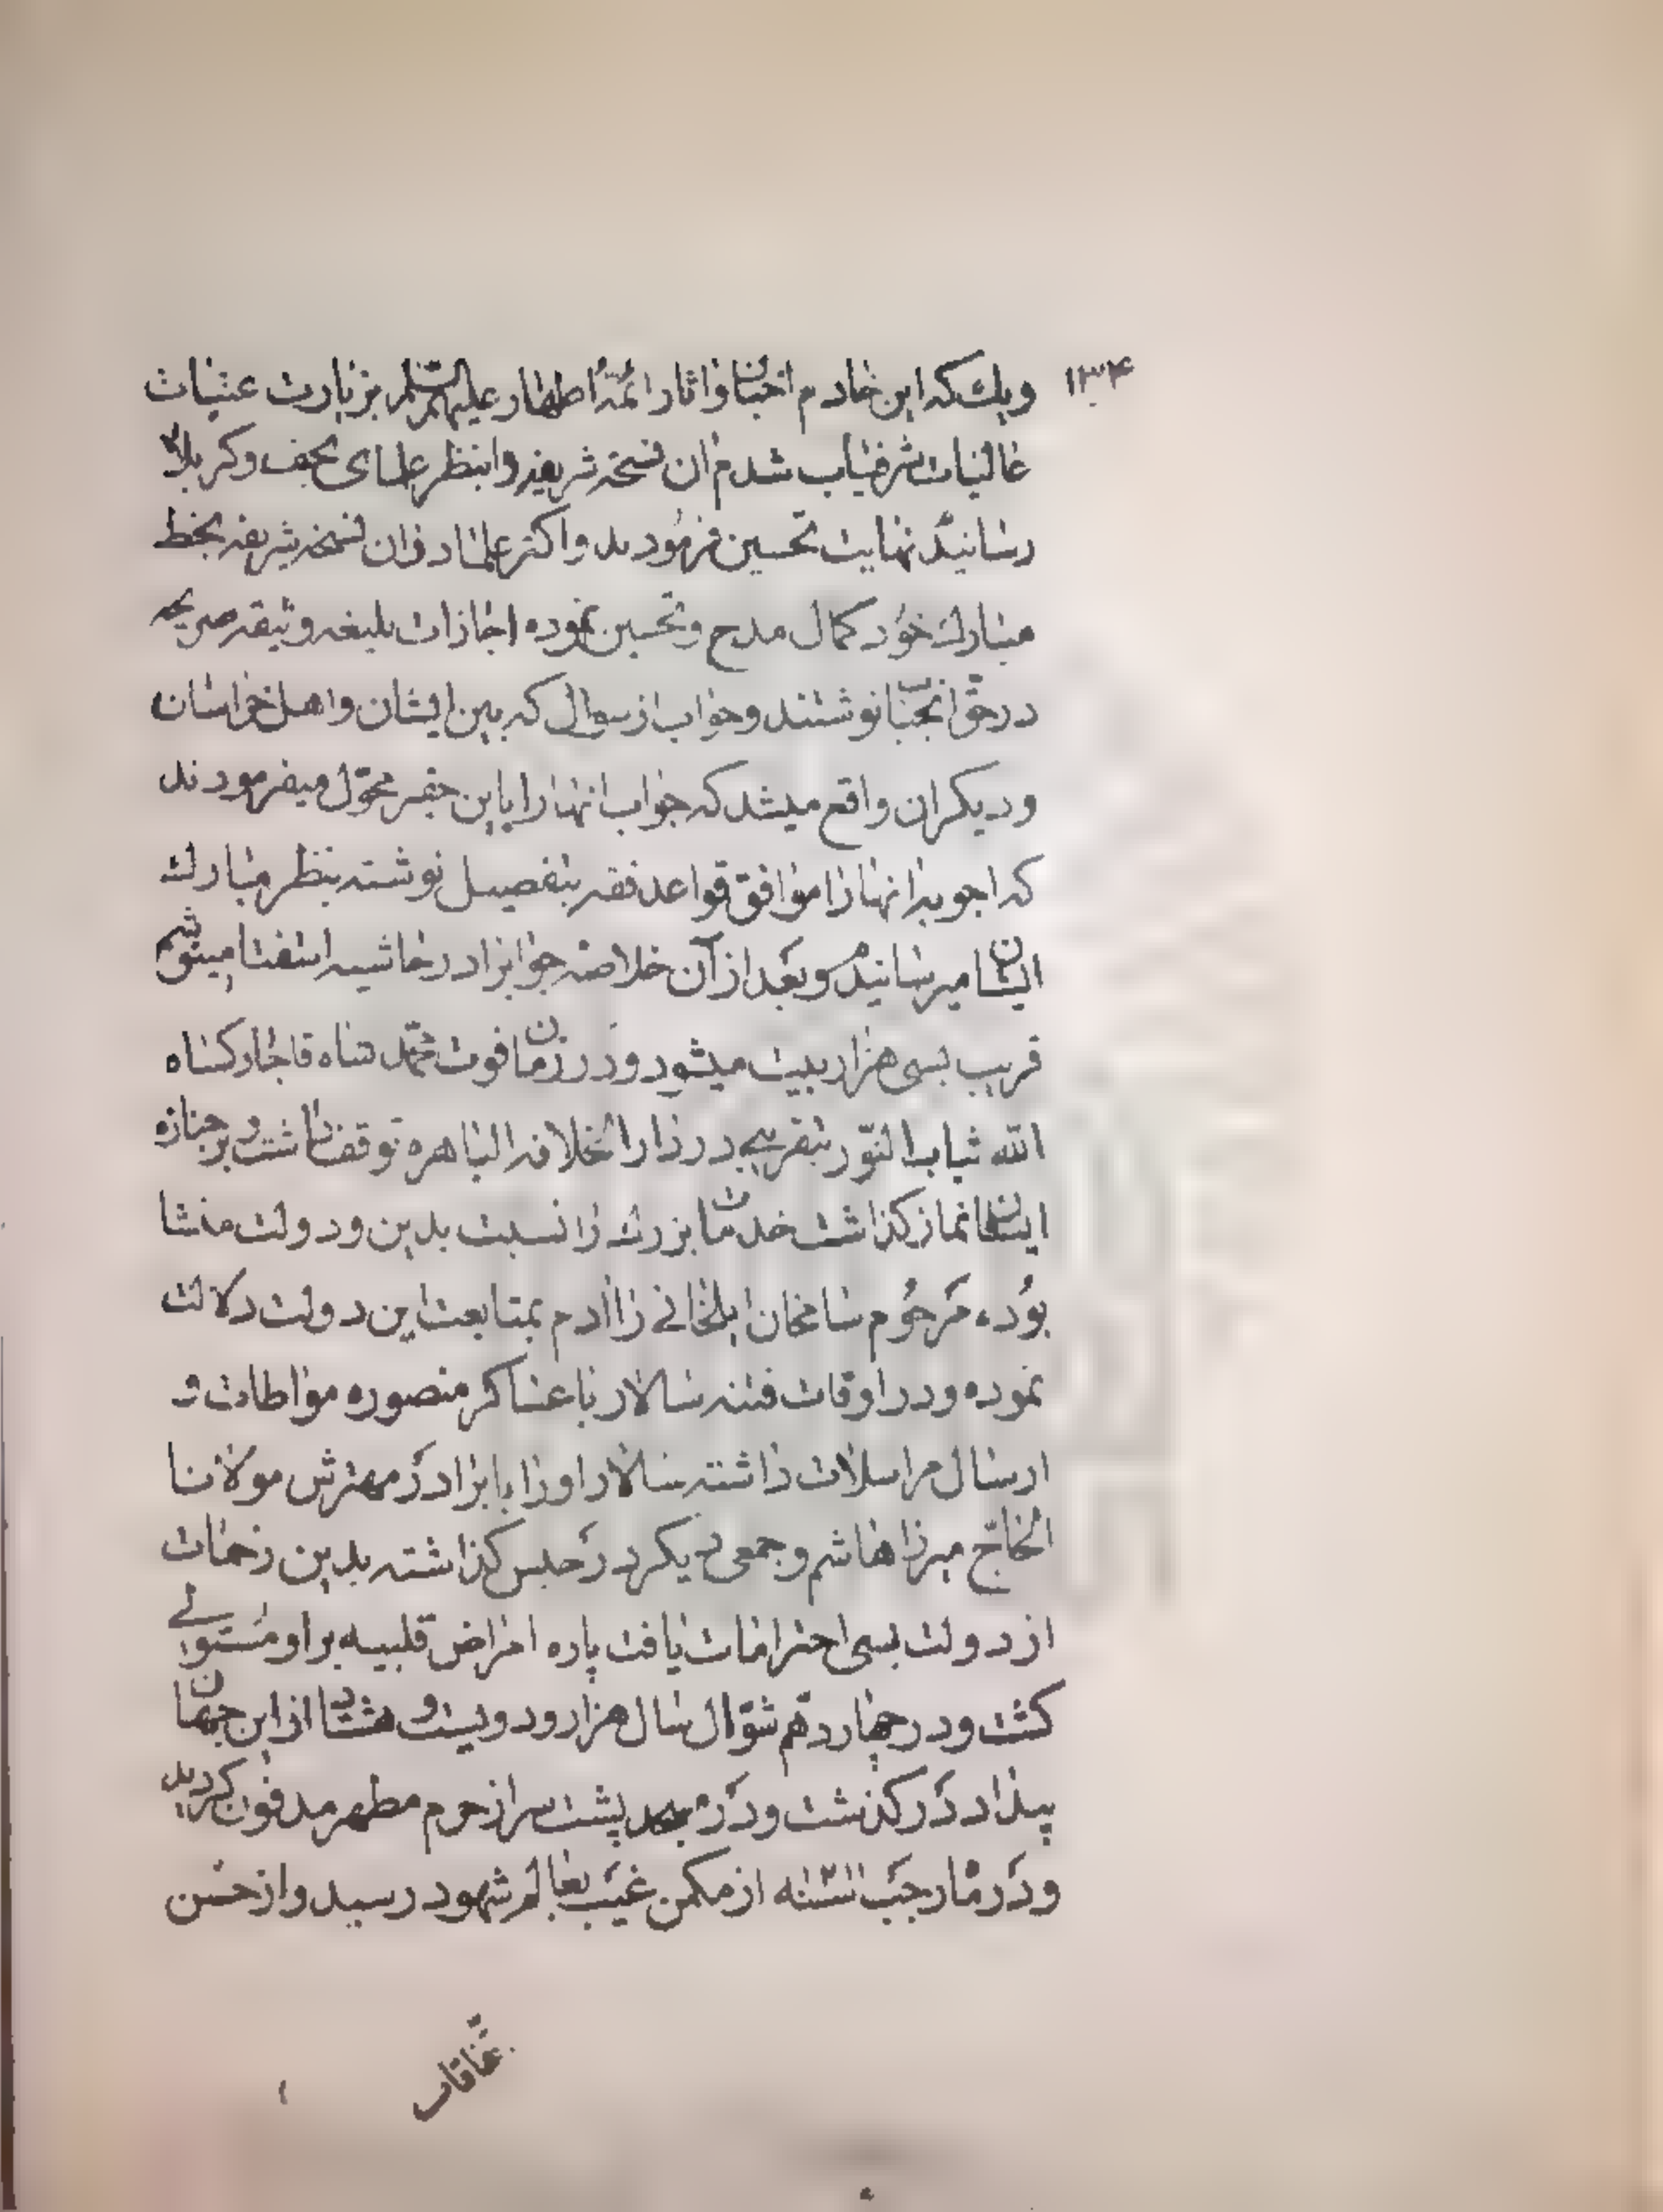 ۱۳۴
ویك که این خادم اخبار و اثار ائمّهٔ اطهار علیهم السّلم بزیارت عتبات
عالیات شرفیاب شدم ان نسخهٔ شریفه را بنظر علمای نجف و کربلا
رسانیدم نهایت تحسین فرمودند و اکثر علما در ان نسخه شریفه بخط
مبارك خود کمال مدح و تحسین نموده اجازات بلیغه وثیقه صریحه
در حقّ انجناب نوشتند و جواب از سوالی که بین ایشان و اهل خراسان
و دیکران واقع میشد که جواب انها را باین حقیر محوّل میفرمودند
که اجوبه انها را موافق قواعد فقه بتفصیل نوشته بنظر مبارك
ایشان میرسانیدم و بعد از آن خلاصه جوابرا در حاشیه استفتا مینوشتم
قریب بسی هزار بیت میشود و در زمان فوت محمّد شاه قاجار کساه
الله ثیاب النّور بتقریبی در دارالخلافه الباهره توقف داشت و بر جنازه
ایشان نماز کذاشت خدمات بزرك را نسبت بدین و دولت منشا
بوده مرحوم سامخان ایلخانی را ادم بمتابعت این دولت دلالت
نموده و در اوقات فتنه سالار با عساکر منصوره مواطات و
ارسال مراسلات داشته سالار او را با برادر مهترش مولانا
الحاجّ میرزا هاشم و جمعی دیکر در حبس کذاشته بدین زحمات
از دولت بسی احترامات یافت پاره امراض قلبیه بر او مستولی
کشت و در چهاردهم شوّال سال هزار و دویست و هشتاد از این جهان
پدرود درکذشت و در مسجد پشت سر از حرم مطهر مدفون کردید
و در ماه رجب سنه از مکمن غیب بعالم شهود رسید و از حسن